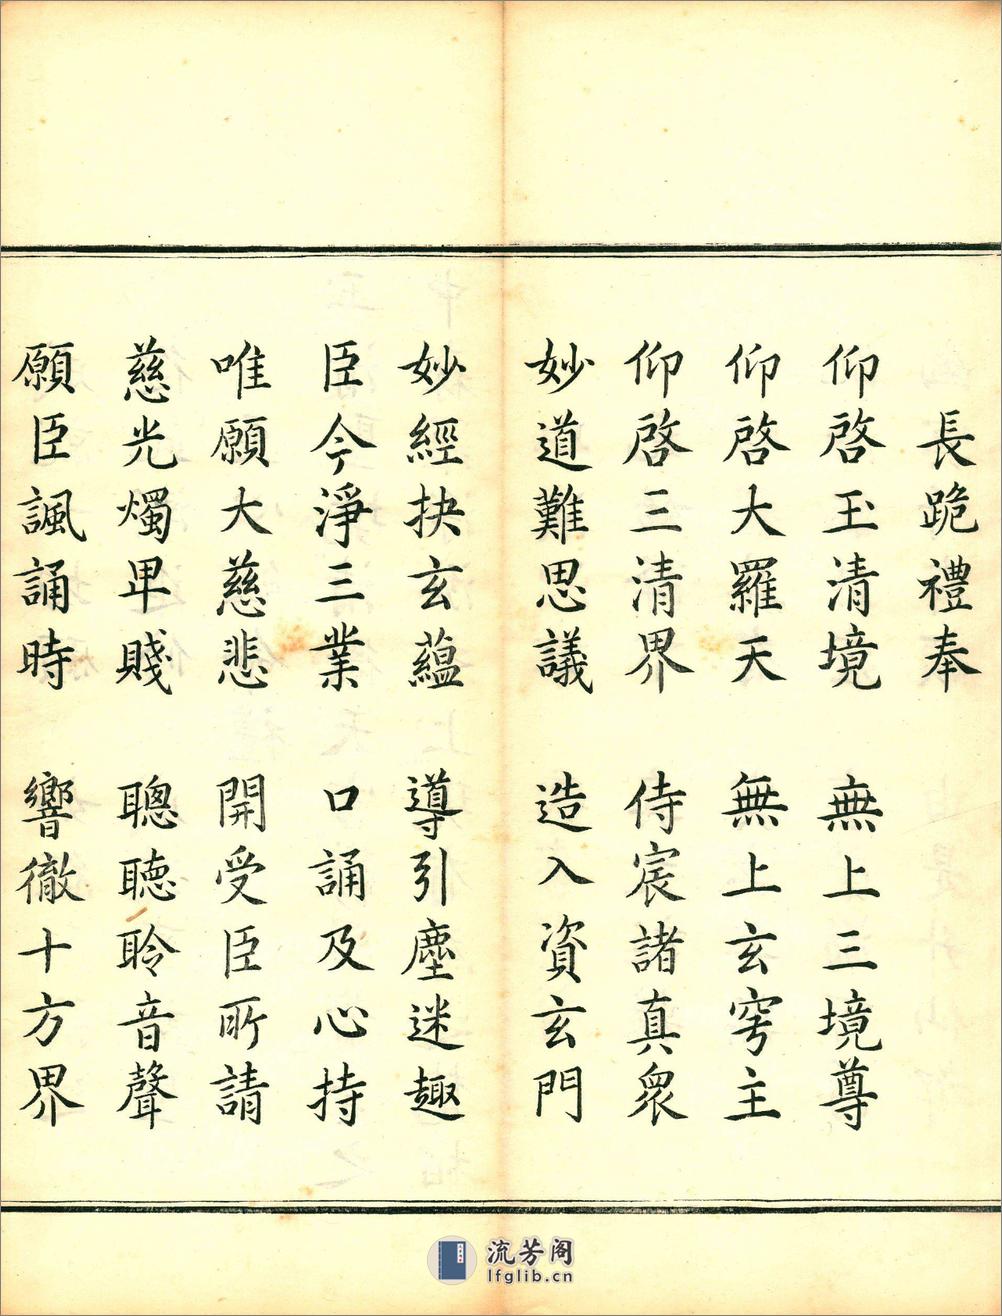 長跪禮奉
仰啓玉清境 無上三境尊
仰啓大羅天 無上玄穹主
仰啓三清界 侍宸諸真衆
妙道難思議 造入資玄門
妙經抉玄蘊 導引塵迷趣
臣今淨三業 口誦及心持
唯願大慈悲 開受臣所請
慈光燭卑賤 聰聽聆音聲
願臣諷誦時 響徹十方界
流芳阁
lfglib.cn